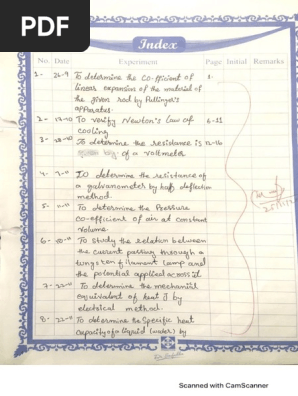 PDF
Index
No. Date Experiment Page Initial Remarks
1- 26-9 To determine the co-efficient of 1-
linear expansion of the material of
the given rod by Pullinger's
apparatus.
2- To verify Newton's law of 6-11
cooling
3- To determine the resistance 12-16
of a voltmeter
4- To determine the resistance of
a galvanometer by half deflection
method.
5- To determine the Pressure
co-efficient of air at constant
volume.
6- To study the relation between
the current passing through a
tungsten filament lamp and
the potential applied across it.
7- To determine the mechanical
equivalent of heat J by
electrical method.
8- To determine the specific heat
capacity of a liquid (water) by
Scanned with CamScanner